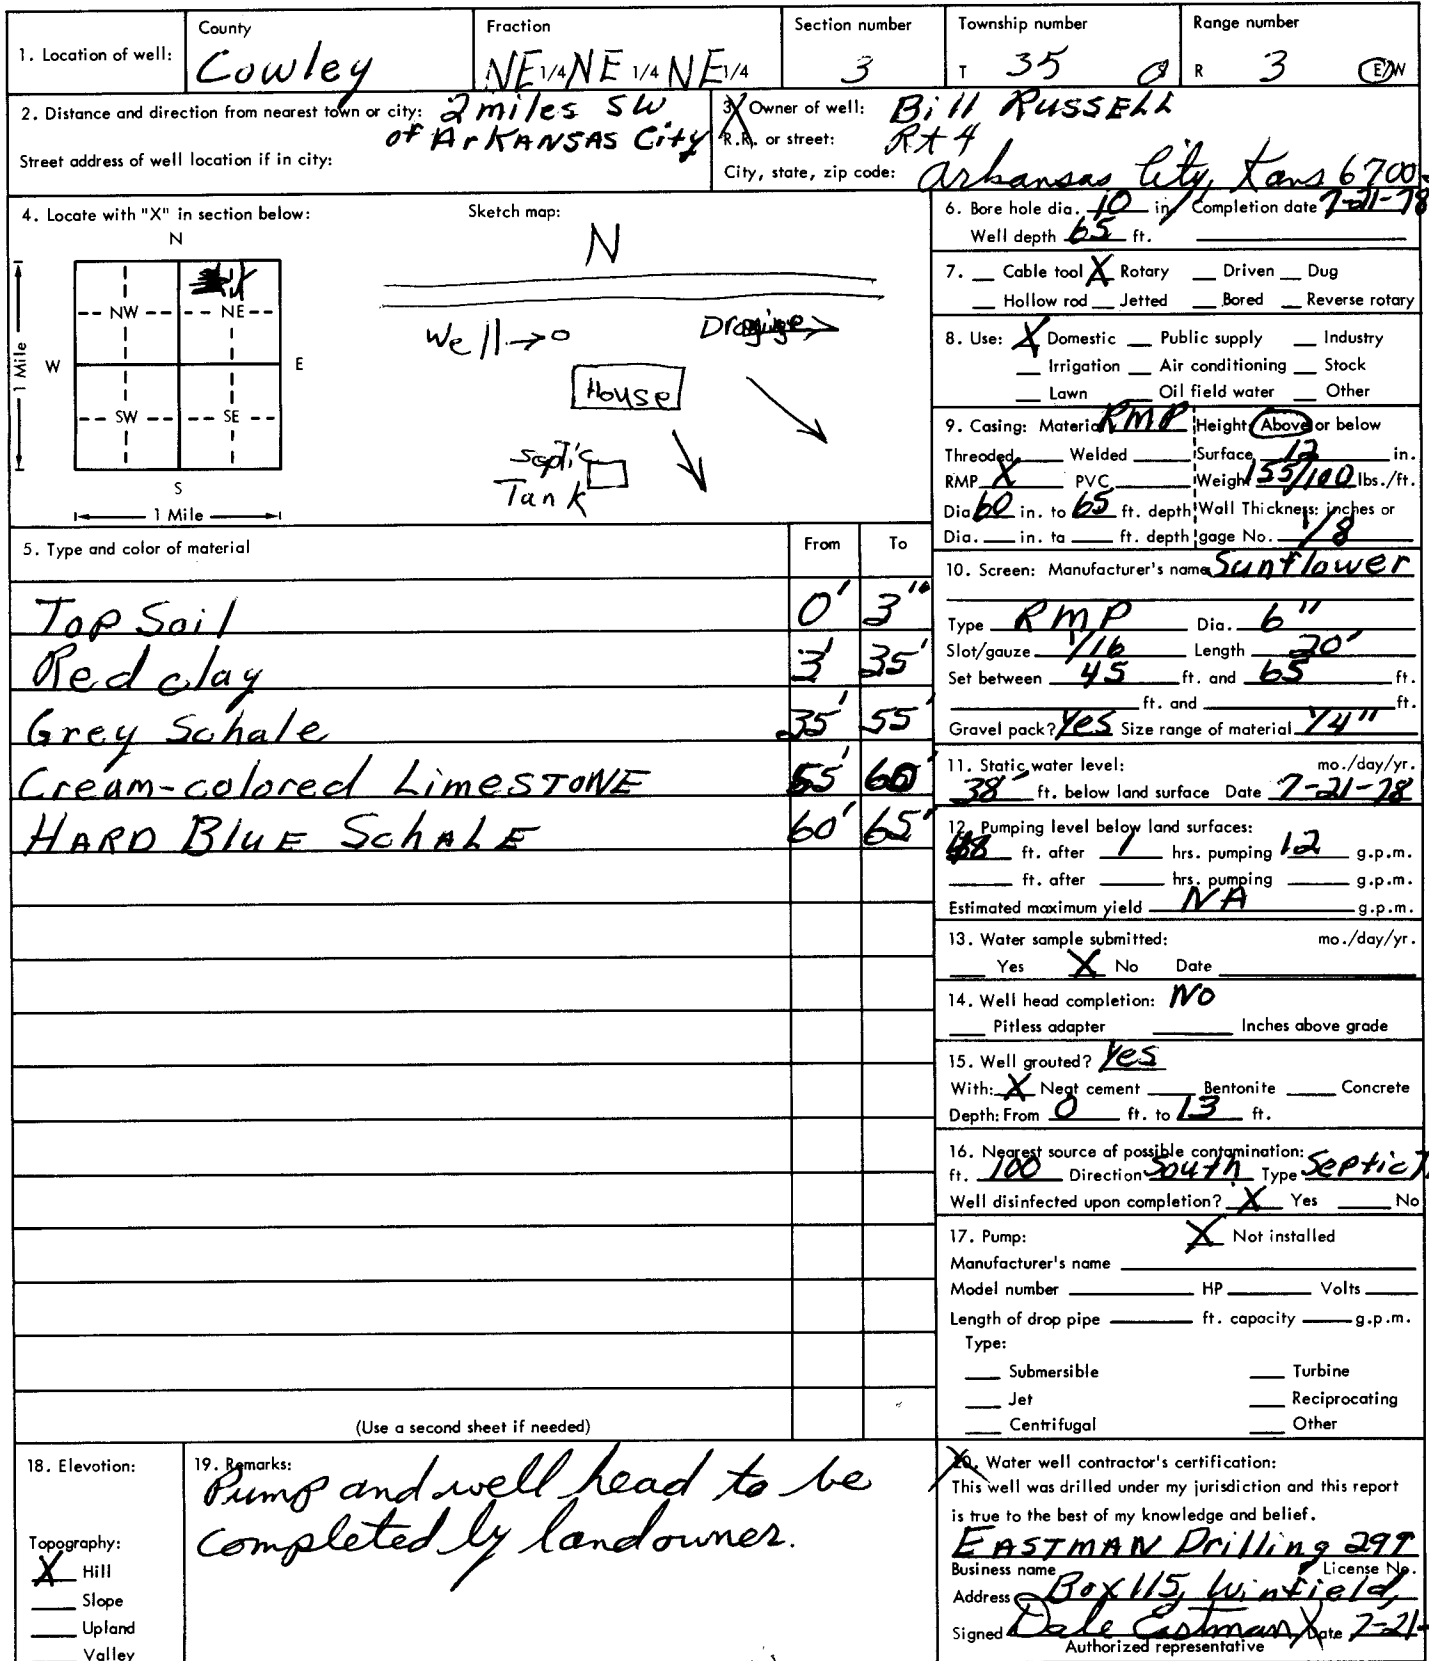 1. Location of well: County Cowley Fraction NE 1/4 NE 1/4 NE 1/4 Section number 3 Township number T 35 S Range number R 3 E/W
2. Distance and direction from nearest town or city: 2 miles SW
of ArKANSAS City
Street address of well location if in city:
3. Owner of well: Bill RUSSELL
R.R. or street: Rt 4
City, state, zip code: Arkansas City, Kans 6700
4. Locate with "X" in section below:
N
NW NE
W E
SW SE
S
1 Mile
1 Mile
Sketch map:
N
Well→o
House
Septic
Tank
5. Type and color of material From To
Top Soil 0' 3"
Red clay 3' 35'
Grey Schale 35' 55'
Cream-colored LimeSTONE 55' 60'
HARD BLUE SchALE 60' 65'
(Use a second sheet if needed)
6. Bore hole dia. 10 in. Completion date 7-21-78
Well depth 65 ft.
7. Cable tool X Rotary Driven Dug
Hollow rod Jetted Bored Reverse rotary
8. Use: X Domestic Public supply Industry
Irrigation Air conditioning Stock
Lawn Oil field water Other
9. Casing: Material RMP Height: Above or below
Threaded Welded Surface 12 in.
RMP X PVC Weight 155/100 lbs./ft.
Dia. 60 in. to 65 ft. depth Wall Thickness: inches or
Dia. in. to ft. depth gage No. 1/8
10. Screen: Manufacturer's name Sunflower
Type RMP Dia. 6"
Slot/gauze 1/16 Length 20'
Set between 45 ft. and 65 ft.
ft. and ft.
Gravel pack? Yes Size range of material 1/4"
11. Static water level: mo./day/yr.
38' ft. below land surface Date 7-21-78
12. Pumping level below land surfaces:
ft. after 1 hrs. pumping 12 g.p.m.
ft. after hrs. pumping g.p.m.
Estimated maximum yield NA g.p.m.
13. Water sample submitted: mo./day/yr.
Yes X No Date
14. Well head completion: NO
Pitless adapter Inches above grade
15. Well grouted? Yes
With: X Neat cement Bentonite Concrete
Depth: From 0 ft. to 13 ft.
16. Nearest source of possible contamination:
ft. 100 Direction South Type Septic
Well disinfected upon completion? X Yes No
17. Pump: X Not installed
Manufacturer's name
Model number HP Volts
Length of drop pipe ft. capacity g.p.m.
Type:
Submersible Turbine
Jet Reciprocating
Centrifugal Other
18. Elevation:
Topography:
X Hill
Slope
Upland
Valley
19. Remarks:
Pump and well head to be
completed by landowner.
20. Water well contractor's certification:
This well was drilled under my jurisdiction and this report
is true to the best of my knowledge and belief.
EASTMAN Drilling 299
Business name License No.
Address Box 115, Winfield,
Signed Dale Eastman X Date 7-21-
Authorized representative